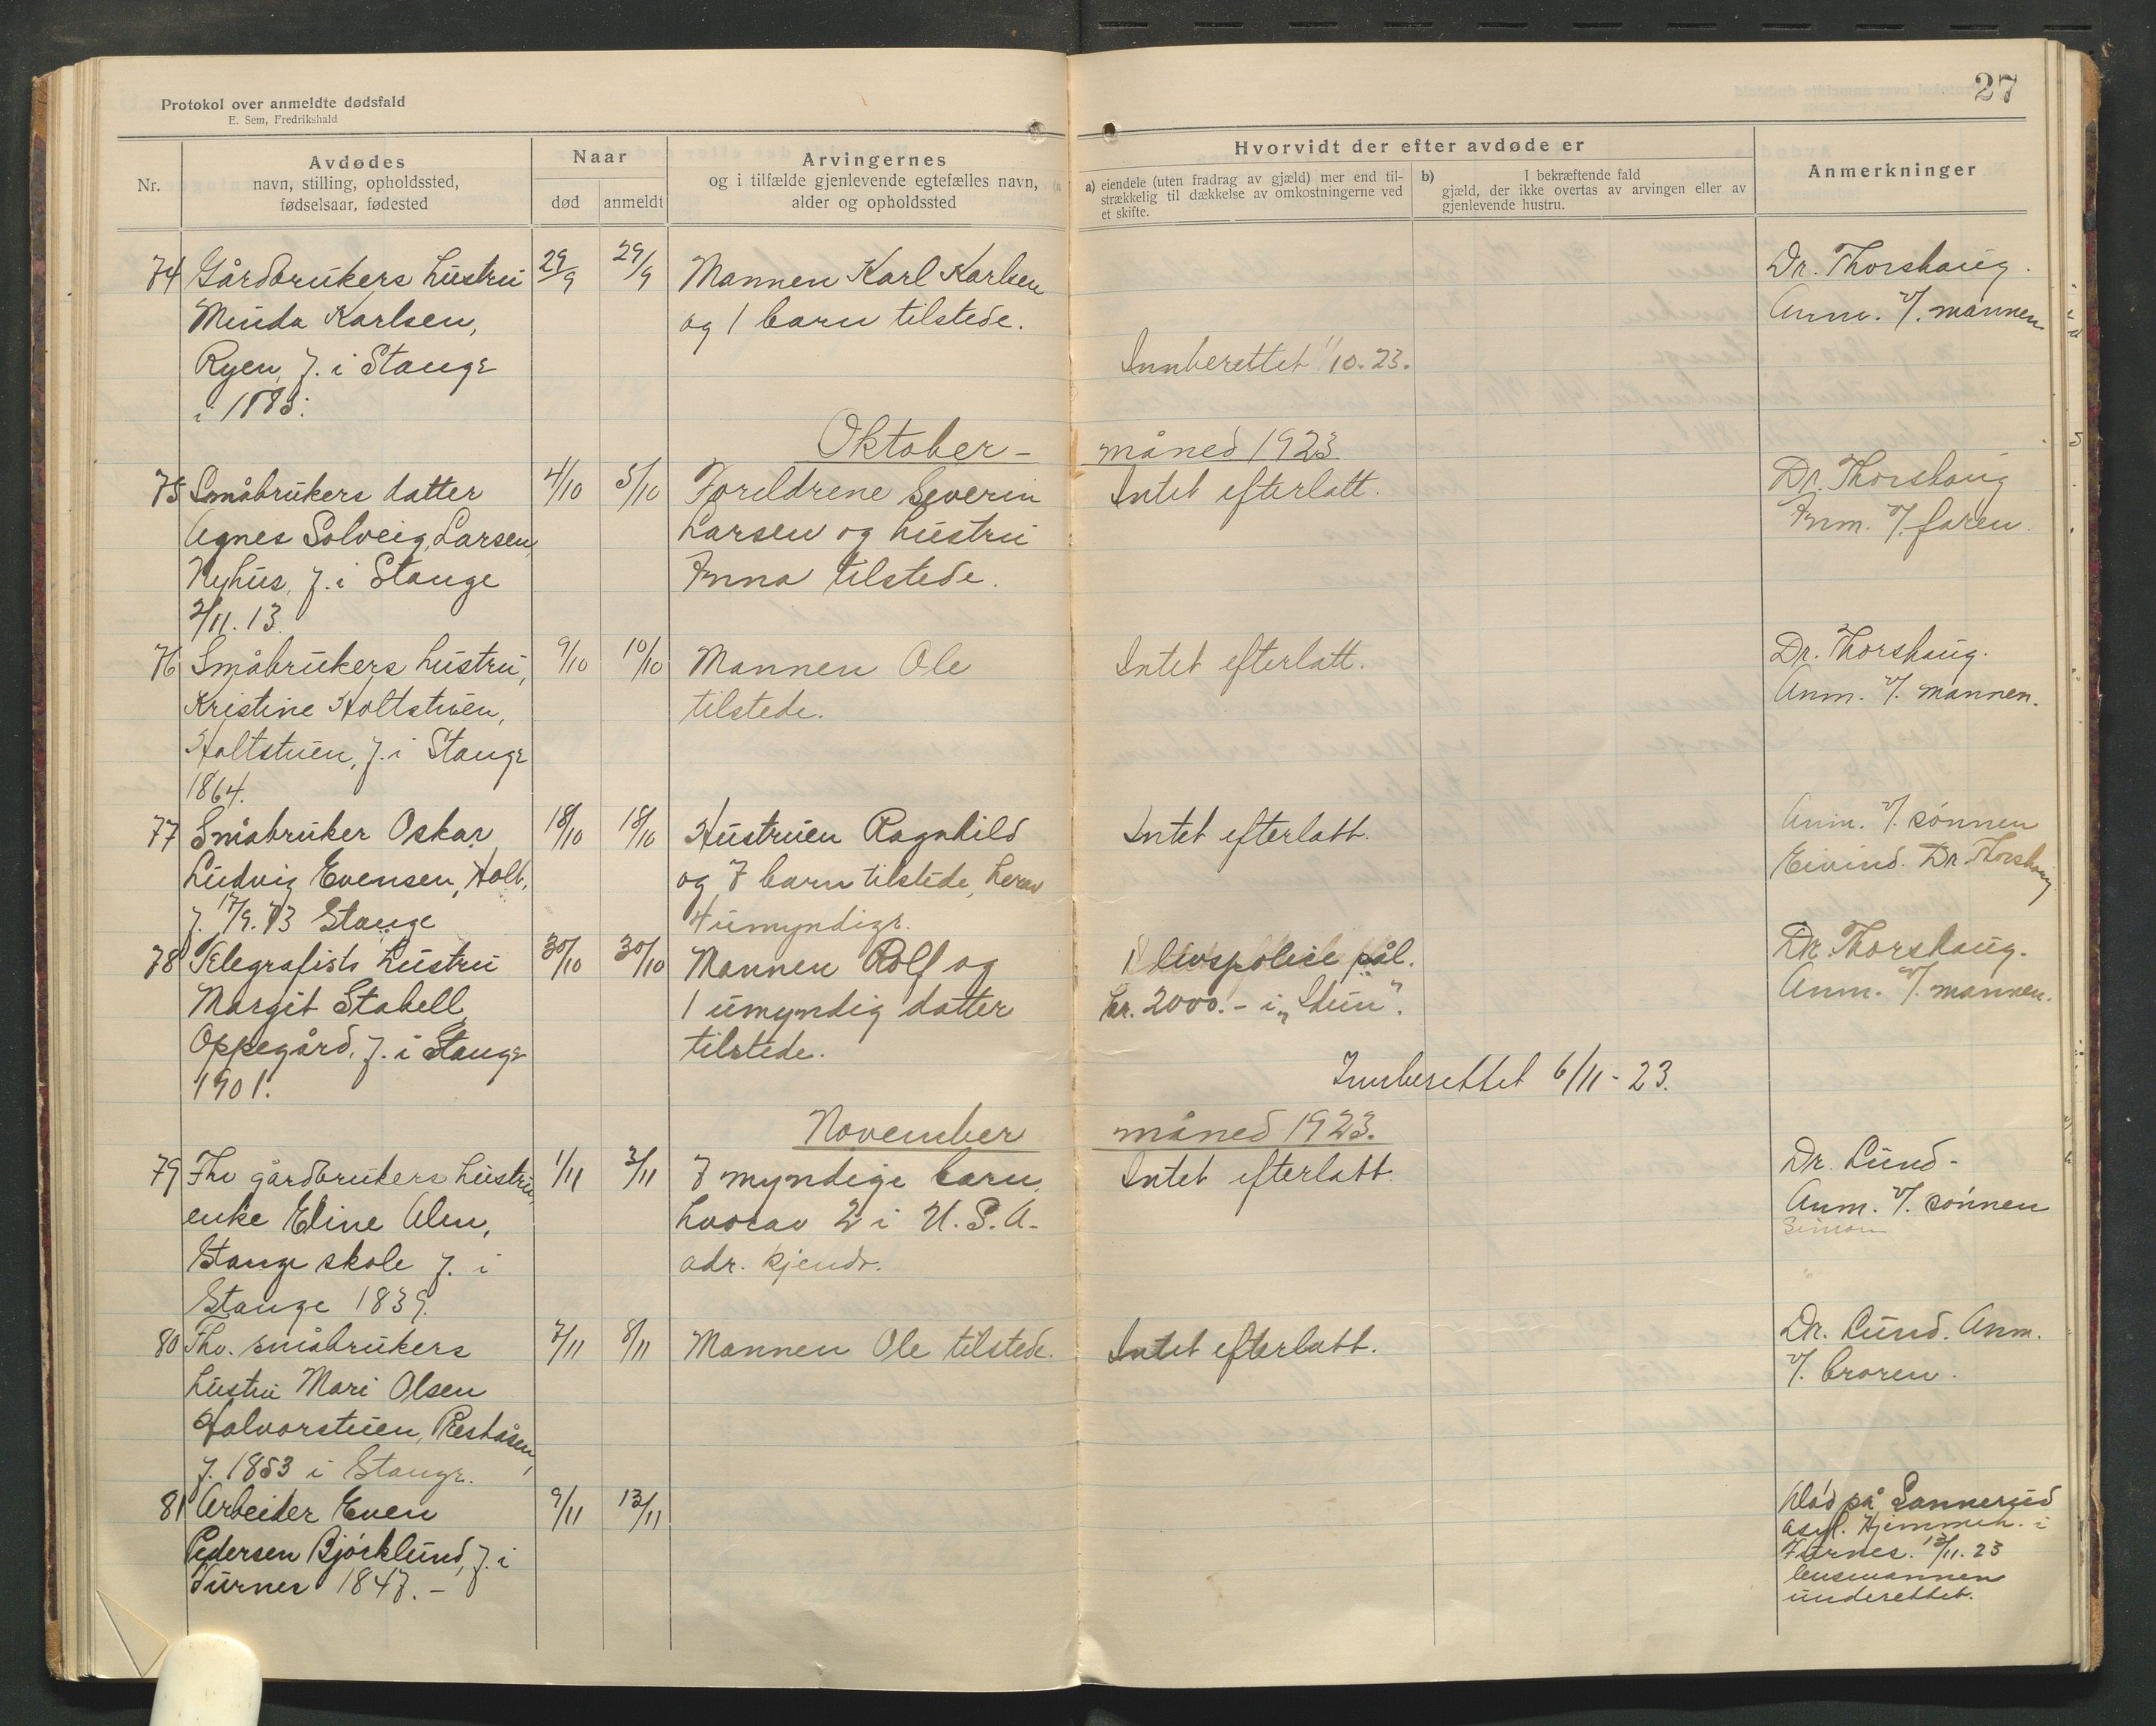 Protokol over anmeldte dødsfald
E. Sem, Fredrikshald
27
Nr.
Avdødes
navn, stilling, opholdssted,
fødselsaar, fødested
Naar
død
anmeldt
Arvingernes
og i tilfælde gjenlevende egtefælles navn,
alder og opholdssted
Hvorvidt der efter avdøde er
a) eiendele (uten fradrag av gjæld) mer end til-
strækkelig til dækkelse av omkostningerne ved
et skifte.
b) I bekræftende fald
gjæld, der ikke overtas av arvingen eller av
gjenlevende hustru.
Anmerkninger
74 Gårdbrukers hustru 29/9 29/9 Mannen Karl Karlsen Dr. Thorshaug.
Minda Karlsen, og 1 barn tilstede. Anm. v/. mannen
Ryen, f. i Stange Innberettet 1/10.23.
i 1883.
Oktober - måned 1923
75 Småbrukers datter 4/10 5/10 Foreldrene Severin Intet efterlatt. Dr. Thorshaug
Agnes Solveig Larsen, Larsen og hustru Anm. v/. faren.
Nyhus, f. i Stange Anna tilstede.
2/11.13
76 Småbrukers hustru, 9/10 10/10 Mannen Ole Intet efterlatt. Dr. Thorshaug.
Kristine Holtstuen, tilstede. Anm. v/. mannen.
Holtstuen, f. i Stange
1864.
77 Småbruker Oskar 18/10 18/10 Hustruen Ragnhild Intet efterlatt. Anm. v/. sønnen
Ludvig Evensen, Holt, og 7 barn tilstede, herav Eivind. Dr. Thorshaug
f. 17/9.73 Stange 4 umyndige.
78 Telegrafists hustru 30/10 30/10 Mannen Rolf og 1 livspolice pål. Dr. Thorshaug.
Margit Stabell 1 umyndig datter kr. 2000.- i „Idun". Anm. v/. mannen.
Oppegård, f. i Stange tilstede.
1901. Innberettet 6/11-23.
November måned 1923.
79 Fhv gårdbrukers hustru, 1/11 2/11 7 myndige barn, Intet efterlatt. Dr. Lund-
enke Eline Alm, hvorav 2 i U.S.A. Anm. v/. sønnen
Stange skole f. i adr. kjendt. Simon
Stange 1839.
80 Fhv. småbrukers 7/11 8/11 Mannen Ole tilstede. Intet efterlatt. Dr. Lund. Anm.
hustru Mari Olsen v/. broren.
Halvorstuen, Preståsen,
f. 1853 i Stange.
81 Arbeider Even 9/11 13/11 død på Sannerud
Pedersen Bjørklund, f. i asyl. Hjemmeh. i
Furnes 1847.- Furnes. 13/11.23
lensmannen
underettet.